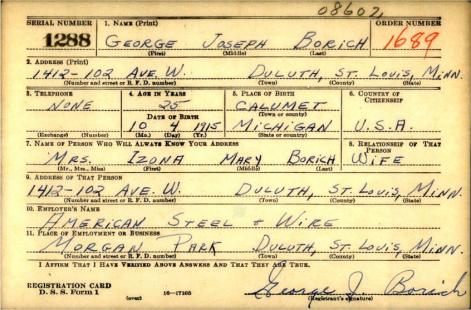 08602
SERIAL NUMBER 1. NAME (Print) ORDER NUMBER
1288 GEORGE JOSEPH BORICH 1689
(First) (Middle) (Last)
2. ADDRESS (Print)
1412-102 AVE. W. DULUTH, ST. LOUIS, MINN.
(Number and street or R. F. D. number) (Town) (County) (State)
3. TELEPHONE 4. AGE IN YEARS 5. PLACE OF BIRTH 6. COUNTRY OF CITIZENSHIP
NONE 25 CALUMET
DATE OF BIRTH (Town or county)
10 4 1915 MICHIGAN U.S.A.
(Exchange) (Number) (Mo.) (Day) (Yr.) (State or country)
7. NAME OF PERSON WHO WILL ALWAYS KNOW YOUR ADDRESS 8. RELATIONSHIP OF THAT PERSON
MRS. IZONA MARY BORICH WIFE
(Mr., Mrs., Miss) (First) (Middle) (Last)
9. ADDRESS OF THAT PERSON
1412-102 AVE. W. DULUTH, ST. LOUIS, MINN.
(Number and street or R. F. D. number) (Town) (County) (State)
10. EMPLOYER'S NAME
AMERICAN STEEL & WIRE
11. PLACE OF EMPLOYMENT OR BUSINESS
MORGAN PARK DULUTH, ST. LOUIS, MINN.
(Number and street or R. F. D. number) (Town) (County) (State)
I AFFIRM THAT I HAVE VERIFIED ABOVE ANSWERS AND THAT THEY ARE TRUE.
REGISTRATION CARD
D. S. S. Form 1 (over) 16-17105 George J. Borich
(Registrant's signature)